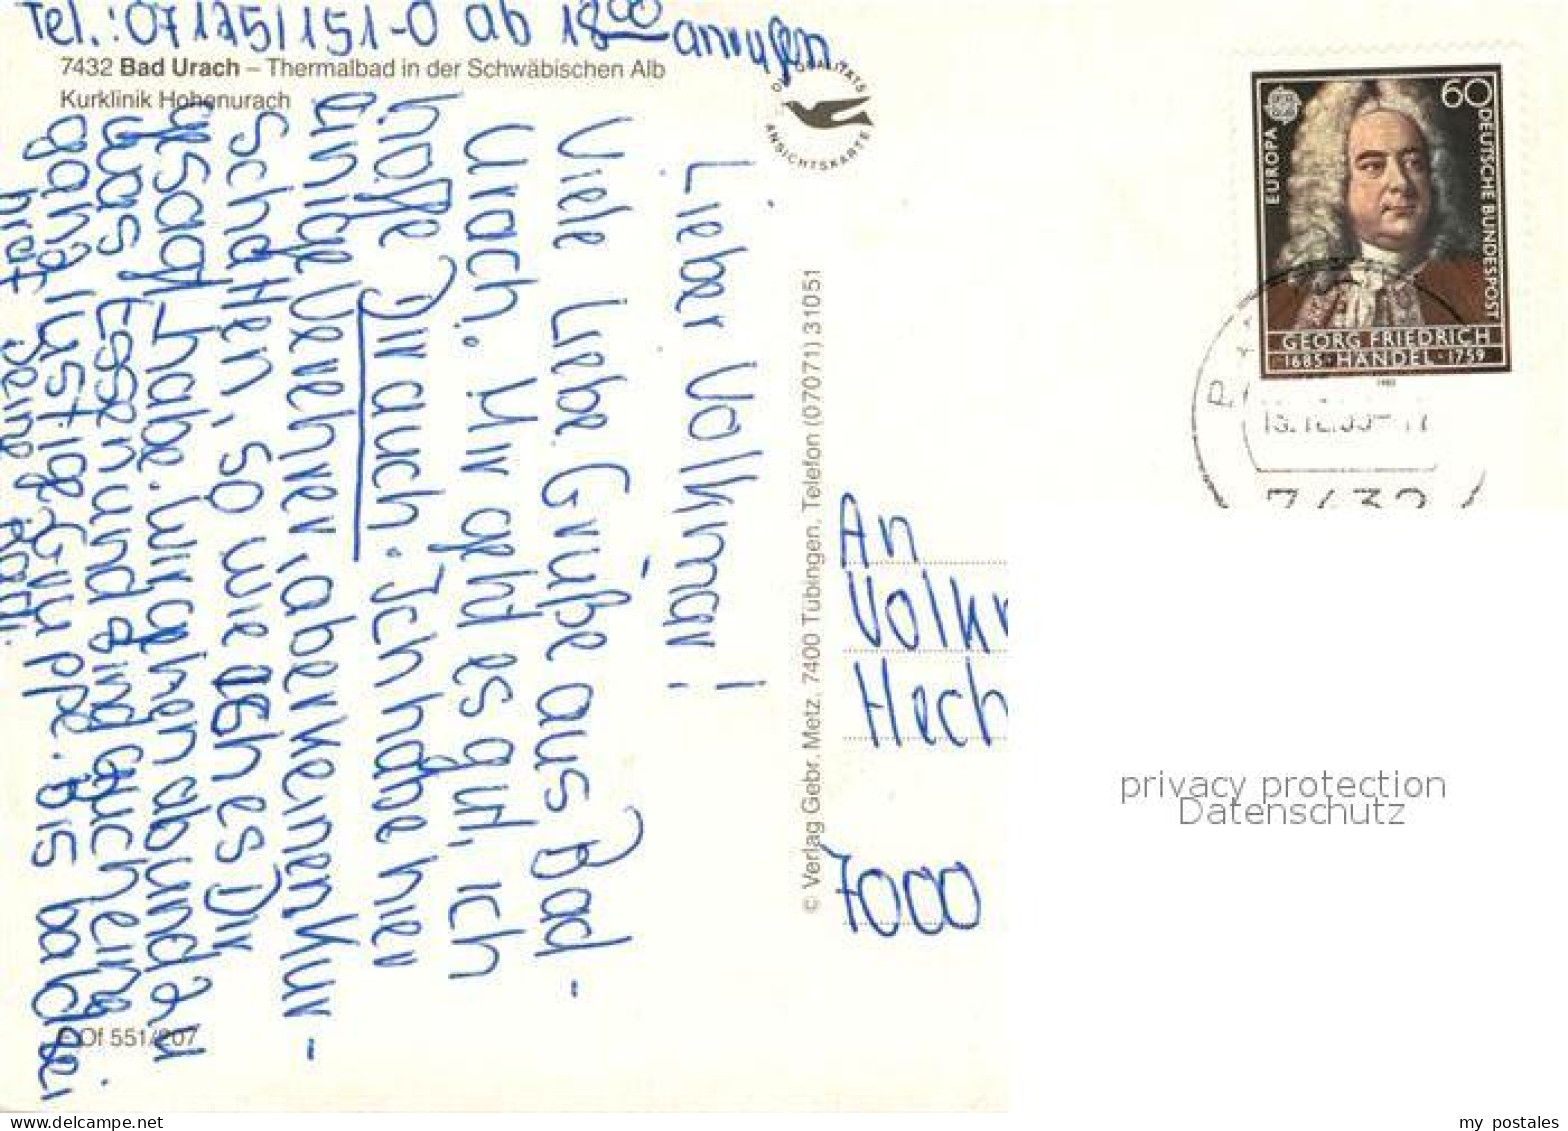 Tel.: 07125/151-0 ab 18 00 anrufen
7432 Bad Urach – Thermalbad in der Schwäbischen Alb
Kurklinik Hohenurach
QUALITÄTS
ANSICHTSKARTE
Lieber Volkmar!
Viele Liebe Grüße aus Bad-
Urach. Mir geht es gut, ich
hoffe Dir auch. Ich habe hier
einige Verehrer, aber keinen Kur-
schatten, so wie ich es Dir
gesagt habe. Wir gehen ab und zu
mas Essen und sind auch eine
ganz lustige Gruppe. Bis bald bei
Deine
© Verlag Gebr. Metz, 7400 Tübingen, Telefon (07071) 31051
Of 551/207
60
DEUTSCHE BUNDESPOST
EUROPA
GEORG FRIEDRICH
1685 · HÄNDEL · 1759
1985
7432
An
Volk
Hech
7000
privacy protection
Datenschutz
www.delcampe.net
my_postales